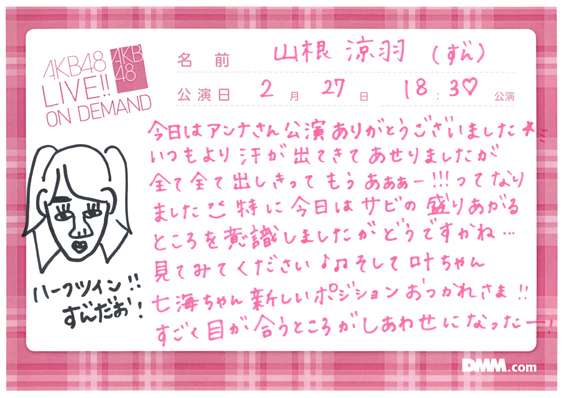 AKB48
LIVE!!
ON DEMAND
AKB
48
名前 山根 涼羽 (ずん)
公演日 2月 27日 18:30公演
今日はアンナさん公演ありがとうございました
いつもより汗が出てきてあせりましたが
全て全て出しきってもうあぁぁー!!!ってなり
ました 特に今日はサビの盛りあがる
ところを意識しましたがどうですかね…
見てみてください♪♫そして叶ちゃん
七海ちゃん新しいポジションおつかれさま!!
すごく目が合うところがしあわせになったー!
ハーフツイン!!
ずんだお!
DMM.com